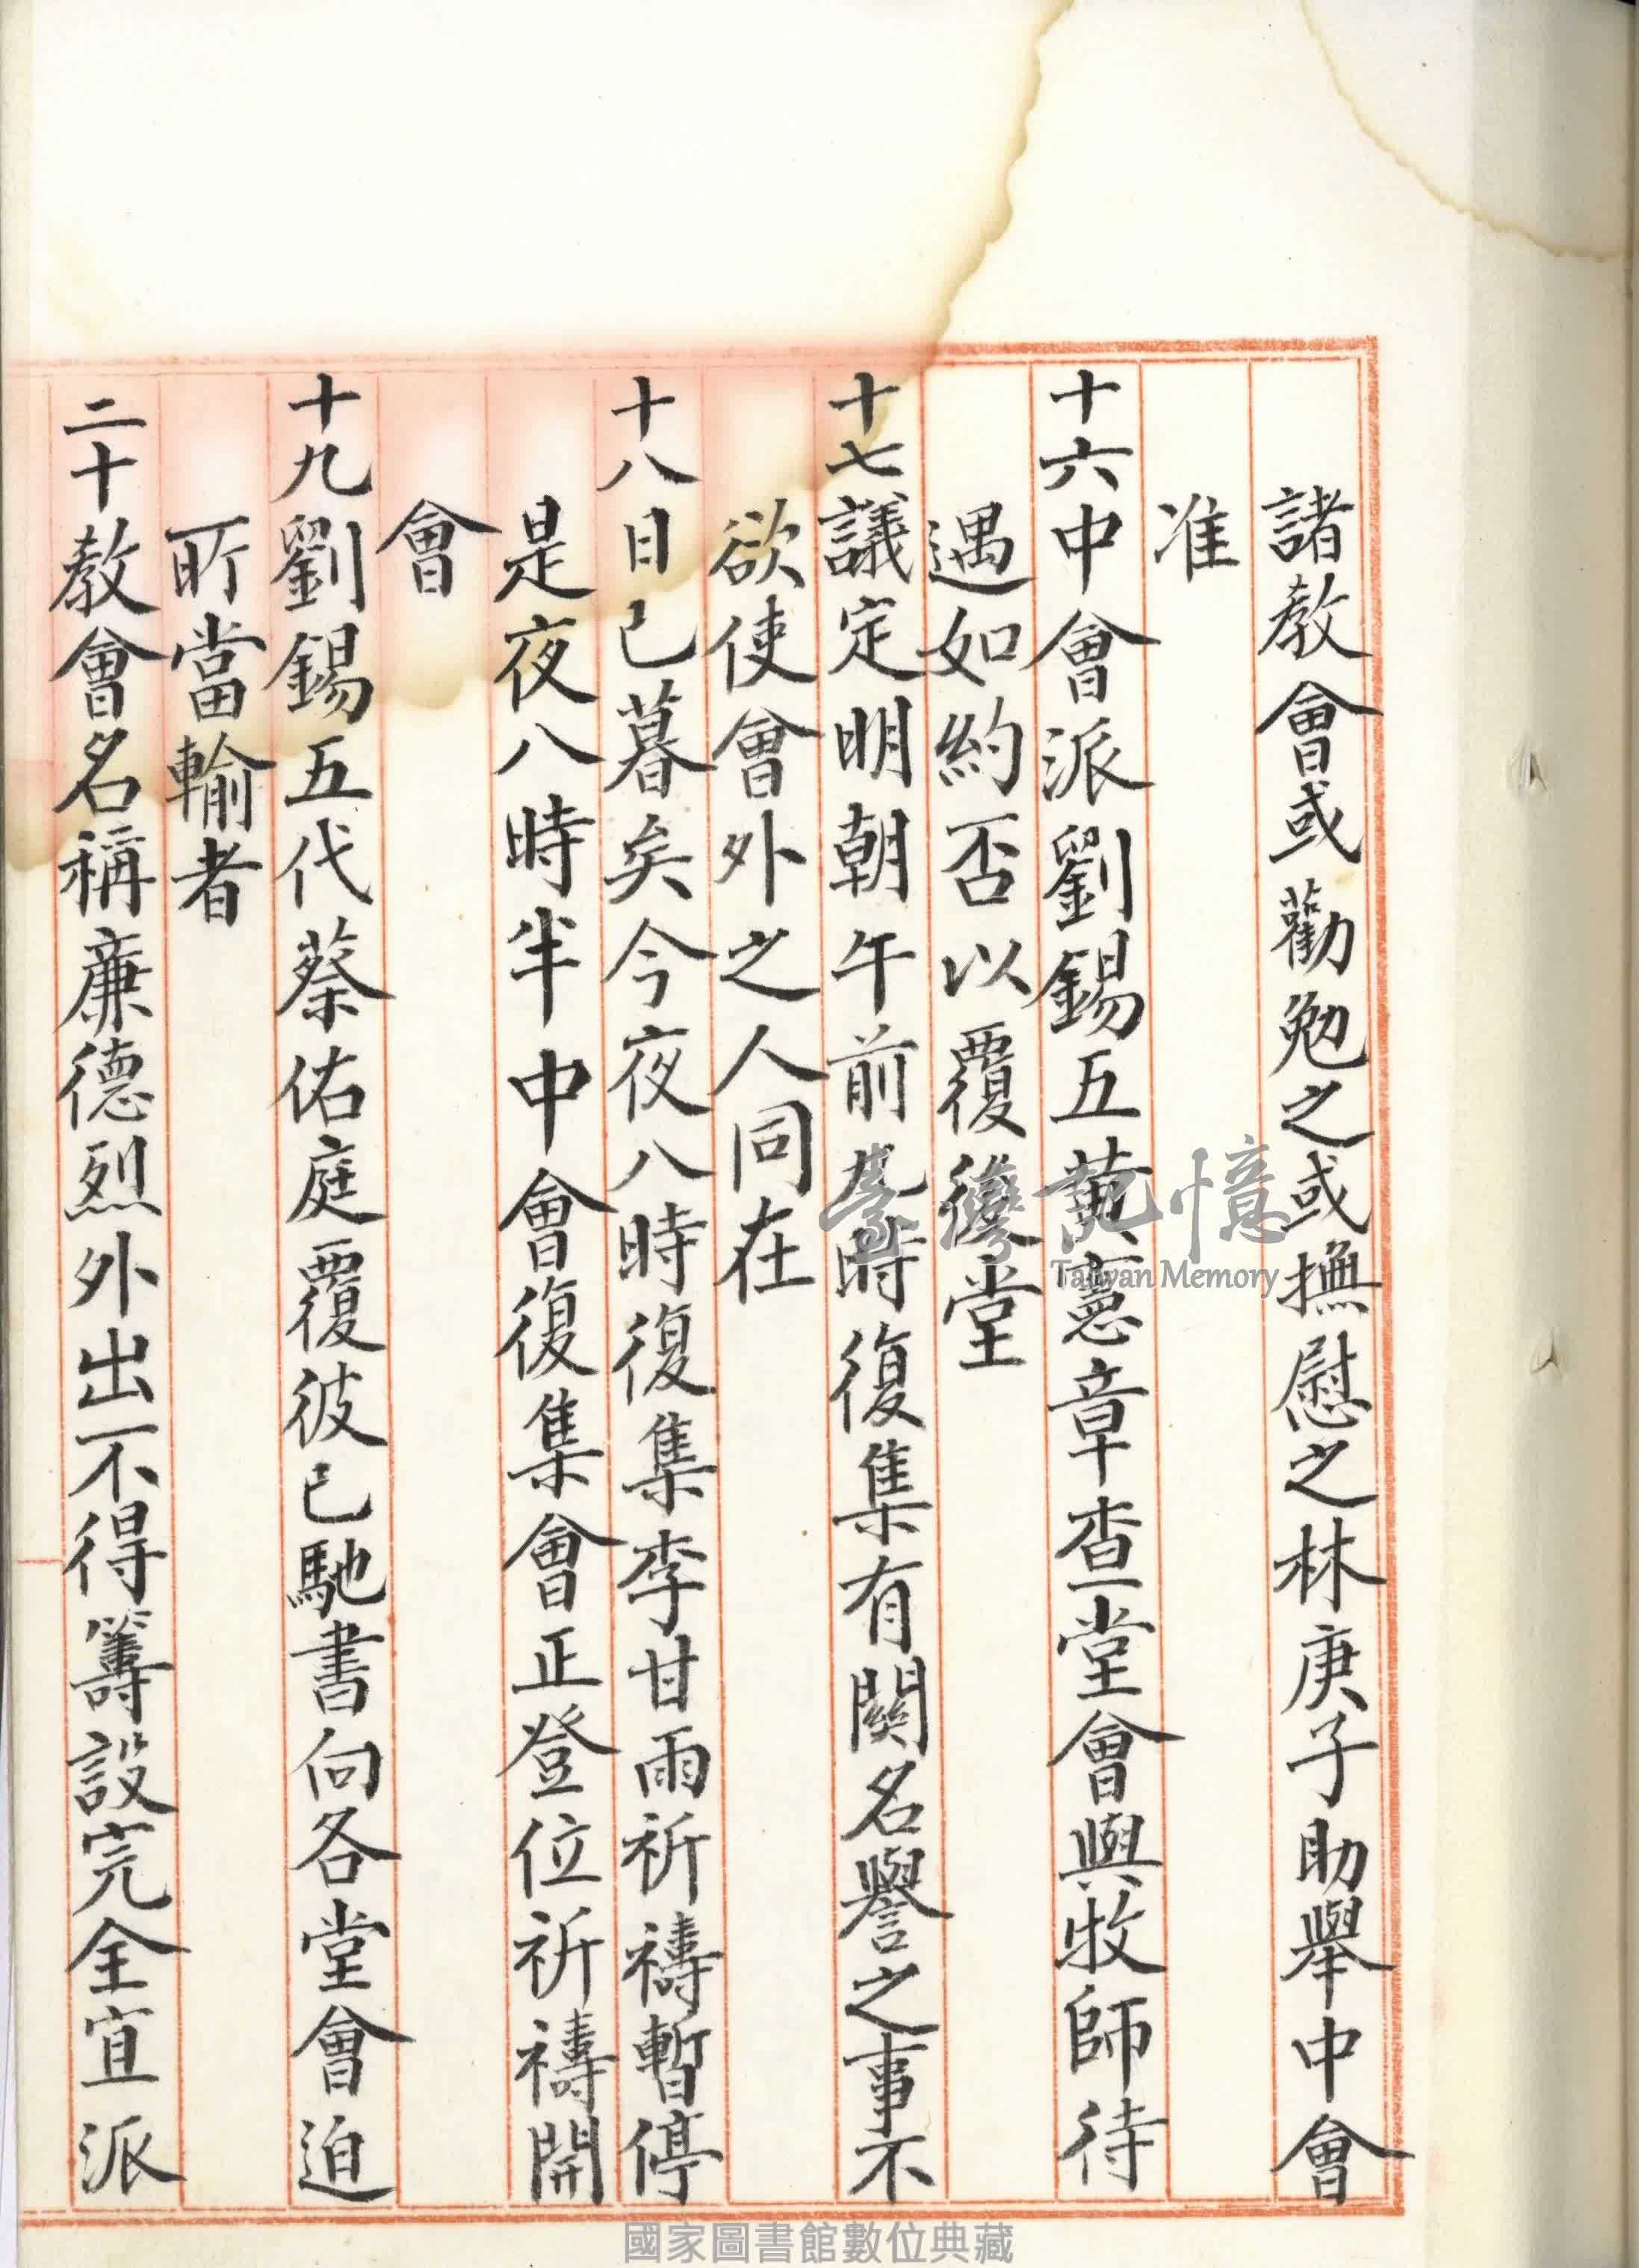 諸教會或勸勉之或撫慰之林庚子助舉中會
准
十六中會派劉錫五黄憲章查堂會與牧師待
遇如約否以覆後堂
十七議定明朝午前九時復集有関名譽之事不
欲使會外之人同在
十八日已暮矣今夜八時復集李甘雨祈禱暫停
是夜八時半中會復集會正登位祈禱開
會
十九劉錫五代蔡佑庭覆彼已馳書向各堂會迫
所當輸者
二十教會名稱廉德烈外出不得籌設完全宜派
臺灣記憶
Taiwan Memory
國家圖書館數位典藏